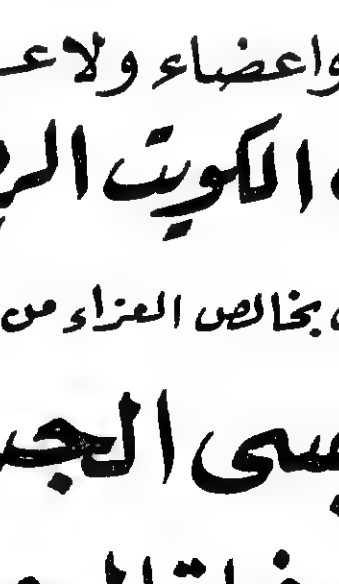 واعضاء ولاعـ
الكويت الر
بخالص العزاء من
سى الجـ